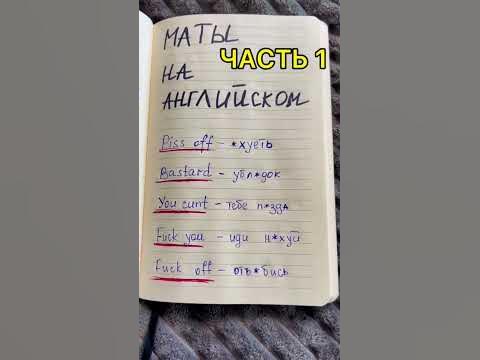 МАТЫ
ЧАСТЬ 1
НА
АНГЛИЙСКОМ
Piss off - *хуеть
Bastard - убл*док
You cunt - тебе п*зда
Fuck you - иди н*хуй
Fuck off - отъ*бись